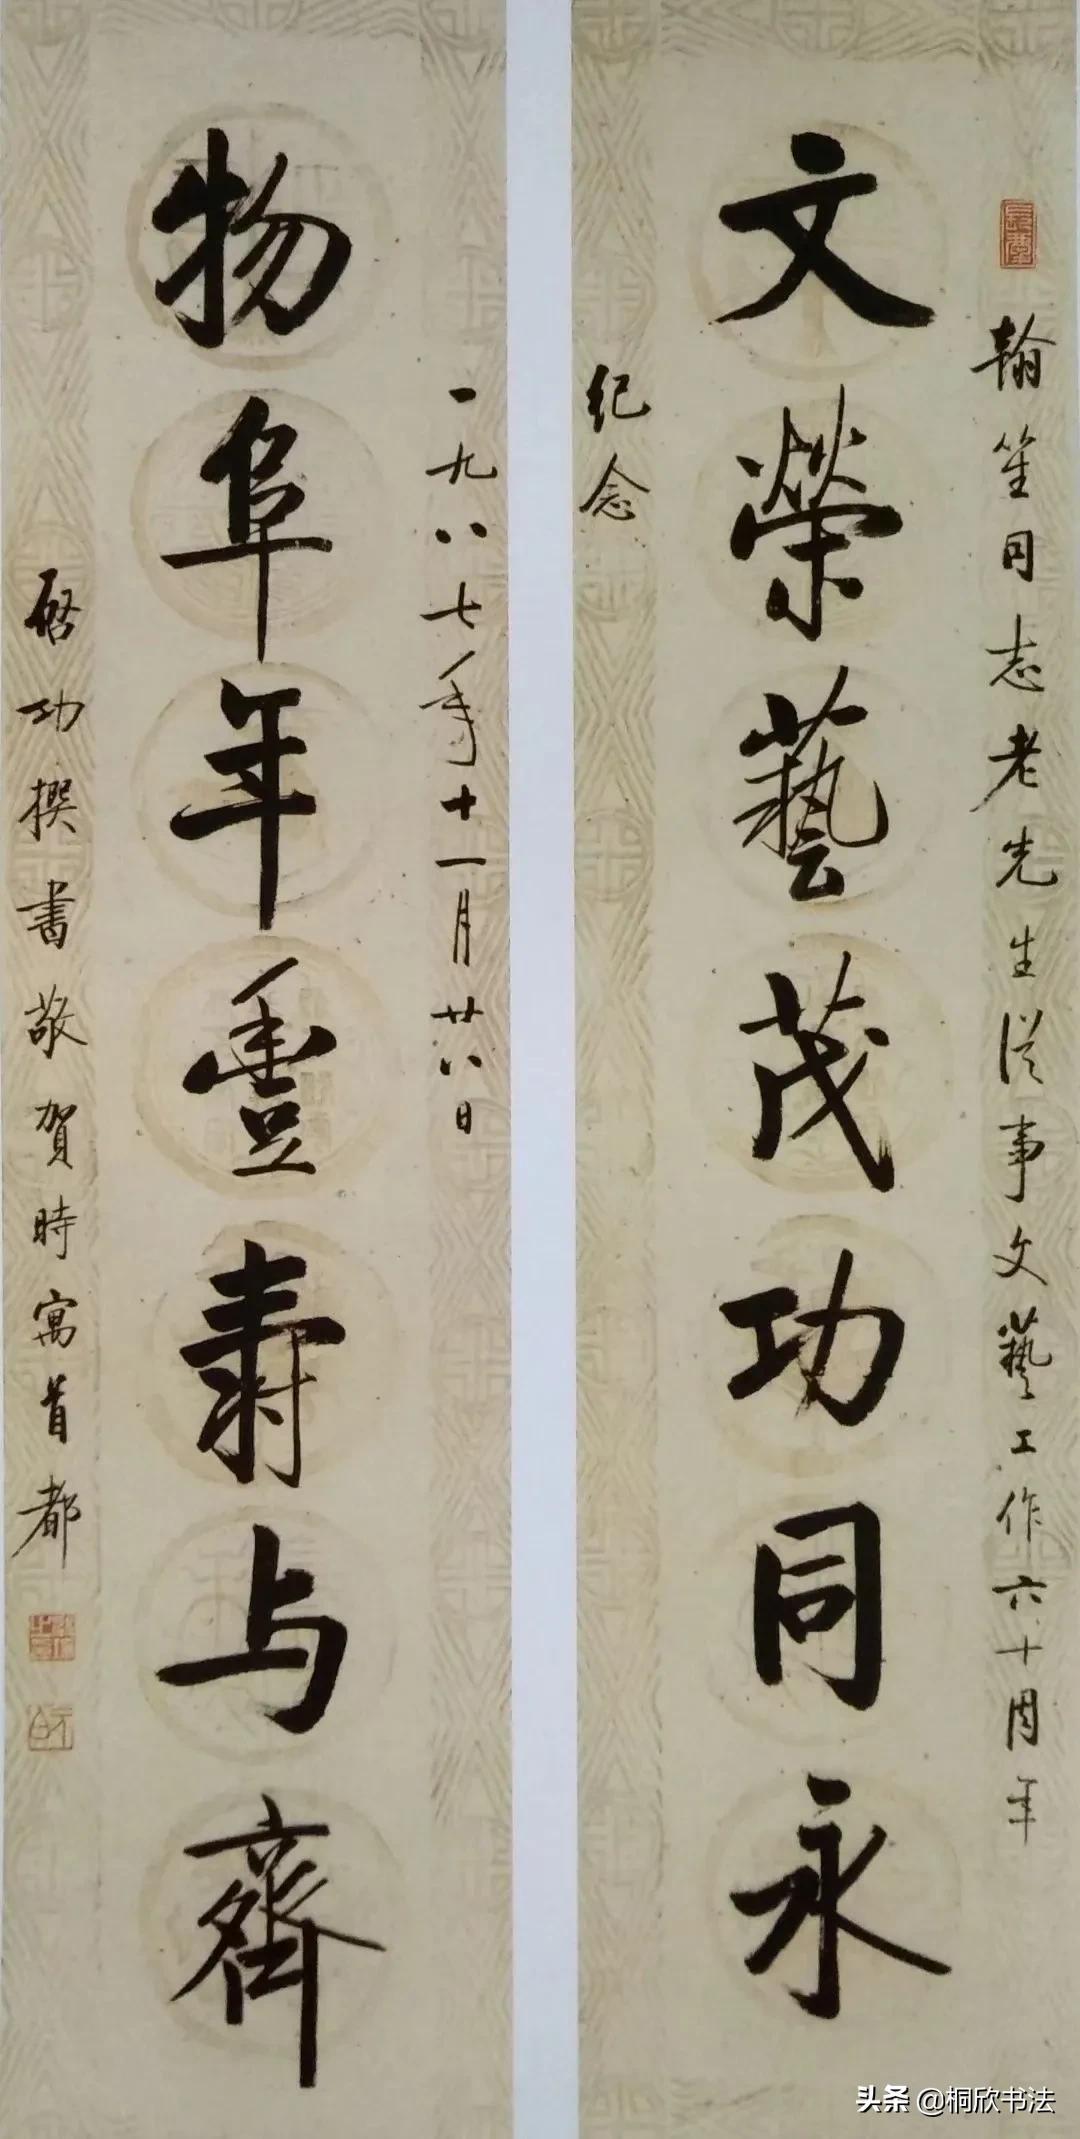 翰笙同志老先生從事文藝工作六十周年
文榮藝茂功同永
纪念
一九八七年十一月廿八日
物阜年豐壽与齊
启功撰書敬賀時寓首都
元白
头条 @桐欣书法